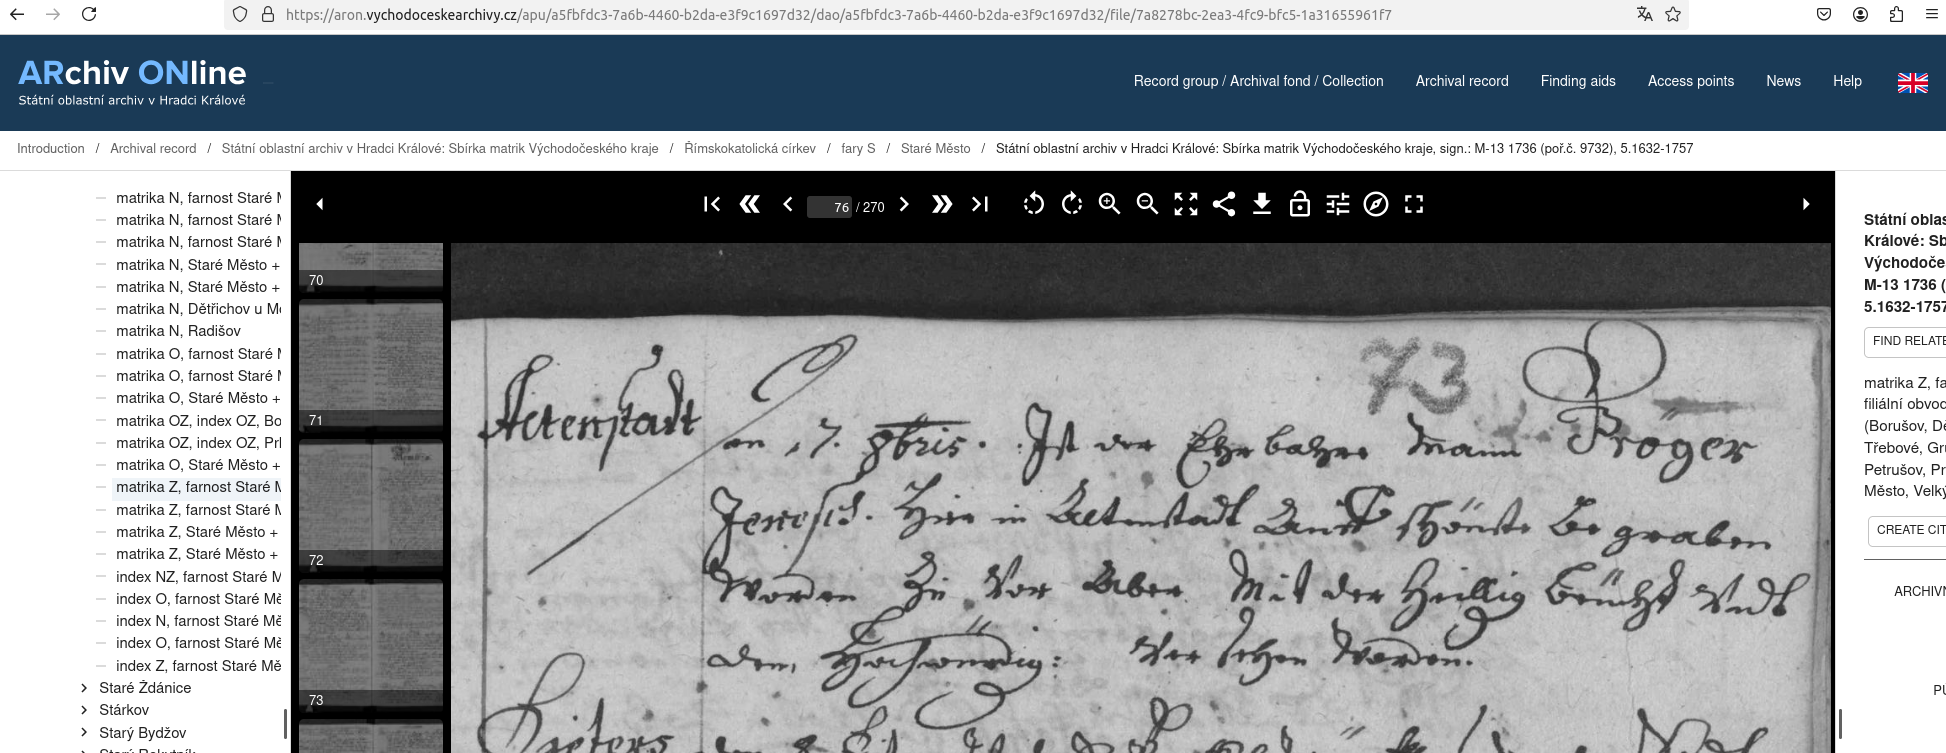 https://aron.vychodoceskearchivy.cz/apu/a5fbfdc3-7a6b-4460-b2da-e3f9c1697d32/dao/a5fbfdc3-7a6b-4460-b2da-e3f9c1697d32/file/7a8278bc-2ea3-4fc9-bfc5-1a31655961f7
ARchiv ONline
Státní oblastní archiv v Hradci Králové
Record group / Archival fond / Collection Archival record Finding aids Access points News Help
Introduction / Archival record / Státní oblastní archiv v Hradci Králové: Sbírka matrik Východočeského kraje / Římskokatolická církev / fary S / Staré Město / Státní oblastní archiv v Hradci Králové: Sbírka matrik Východočeského kraje, sign.: M-13 1736 (poř.č. 9732), 5.1632-1757
matrika N, farnost Staré M
matrika N, farnost Staré M
matrika N, farnost Staré M
matrika N, Staré Město +
matrika N, Staré Město +
matrika N, Dětřichov u Mo
matrika N, Radišov
matrika O, farnost Staré M
matrika O, farnost Staré M
matrika O, Staré Město +
matrika OZ, index OZ, Bo
matrika OZ, index OZ, Prl
matrika O, Staré Město +
matrika Z, farnost Staré M
matrika Z, farnost Staré M
matrika Z, Staré Město +
matrika Z, Staré Město +
index NZ, farnost Staré M
index O, farnost Staré Mě
index N, farnost Staré Mě
index O, farnost Staré Mě
index Z, farnost Staré Mě
Staré Ždánice
Stárkov
Starý Bydžov
Starý Rokytník
76 / 270
70
71
72
73
73
Altenstadt
an 17. 8bris. Ist der Ehrbahre Mann Pröger
Jenesch. Hier in Altenstadt Begraben
Worden Zu Vor Aber Mit der Heillig Beücht Undt
den, Hochwürdig: Ver sehen Worden.
Státní oblas
Králové: Sb
Východoče
M-13 1736 (
5.1632-1757
FIND RELATE
matrika Z, fa
filiální obvod
(Borušov, Dě
Třebové, Gru
Petrušov, Pr
Město, Velký
CREATE CIT
ARCHIV
PU